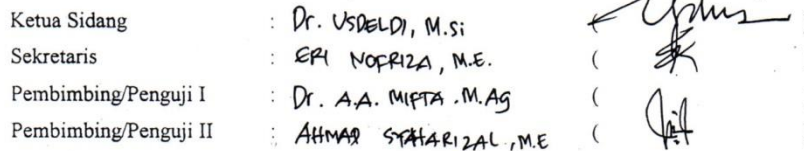 Ketua Sidang : Dr. USDELDI, M.Si (
Sekretaris : ERI NOFRIZA, M.E. (
Pembimbing/Penguji I : Dr. A.A. MIFTA .M.Ag (
Pembimbing/Penguji II : AHMAD SYAHARIZAL ,M.E (